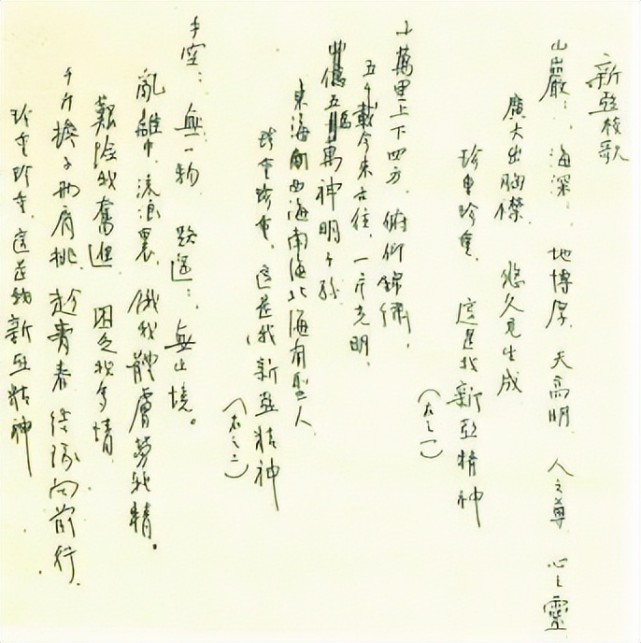 新亞校歌
山巖:, 海深:, 地博厚, 天高明, 人之尊, 心之靈
廣大出胸襟, 悠久見生成
珍重珍重, 這是我新亞精神
(右之一)
十萬里上下四方, 俯仰錦繡,
五千載今來古往, 一片光明,
萬神明子孫
東海西海南海北海有聖人
珍重珍重, 這是我新亞精神
(右之二)
手空:, 無一物, 路遙:, 無止境。
亂離中, 流浪裏, 餓我體膚勞我精。
艱險我奮進, 困乏我多情
千斤擔子兩肩挑, 趁青春結隊向前行.
珍重珍重, 這是我新亞精神